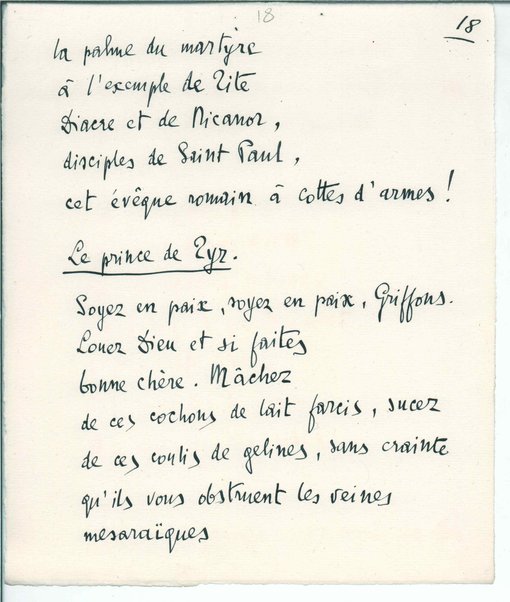 18
18
la palme du martyre
à l'exemple de Tite
Diacre et de Nicanor,
disciples de Saint Paul,
cet évêque romain à cottes d'armes !
Le prince de Tyr.
Soyez en paix, soyez en paix, Griffons.
Louez Dieu et si faites
bonne chère. Mâchez
de ces cochons de lait farcis, sucez
de ces coulis de gelines, sans crainte
qu'ils vous obstruent les veines
mesaraïques